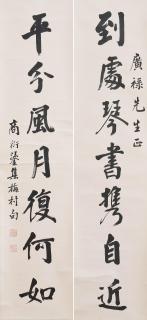 廣祿先生正
到處琴書携自近
平分風月復何如
商衍鎏集梅村句